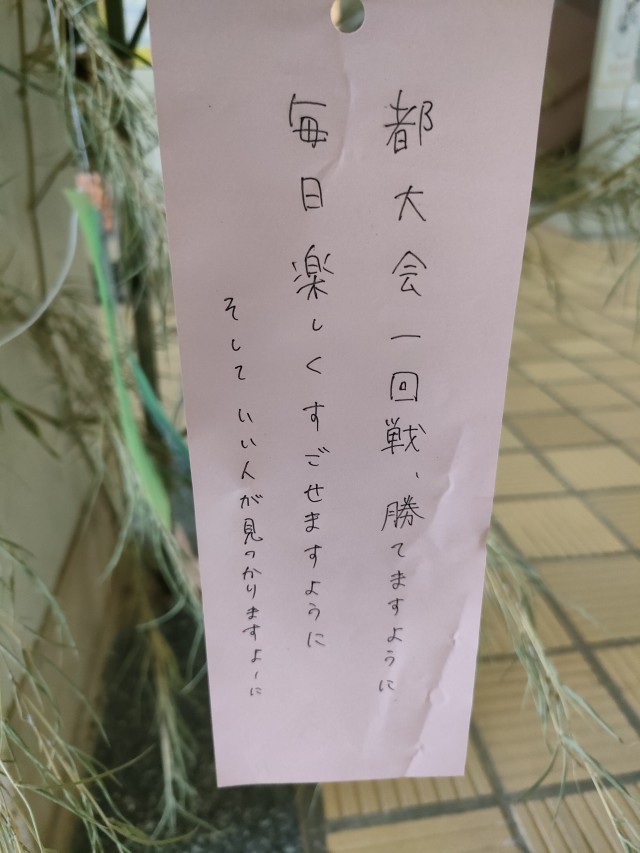 都大会一回戦、勝てますように
毎日楽しくすごせますように
そしていい人が見つかりますよーに